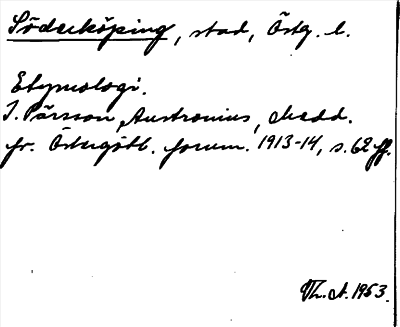 Söderköping, stad, Östg. l.
Etymologi.
J. Pärsson, Austronius, Medd.
fr. Östergötl. fornm. 1913-14, s. 62 ff.
Th. A. 1953.